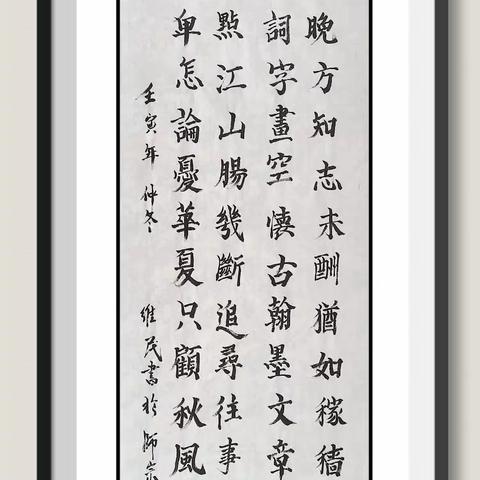 晚方知志未酬猶如稼穡
詞字畫空懷古翰墨文章
點江山腸幾斷追尋往事
卑怎論憂華夏只顧秋風
壬寅年仲冬 維茂書於師